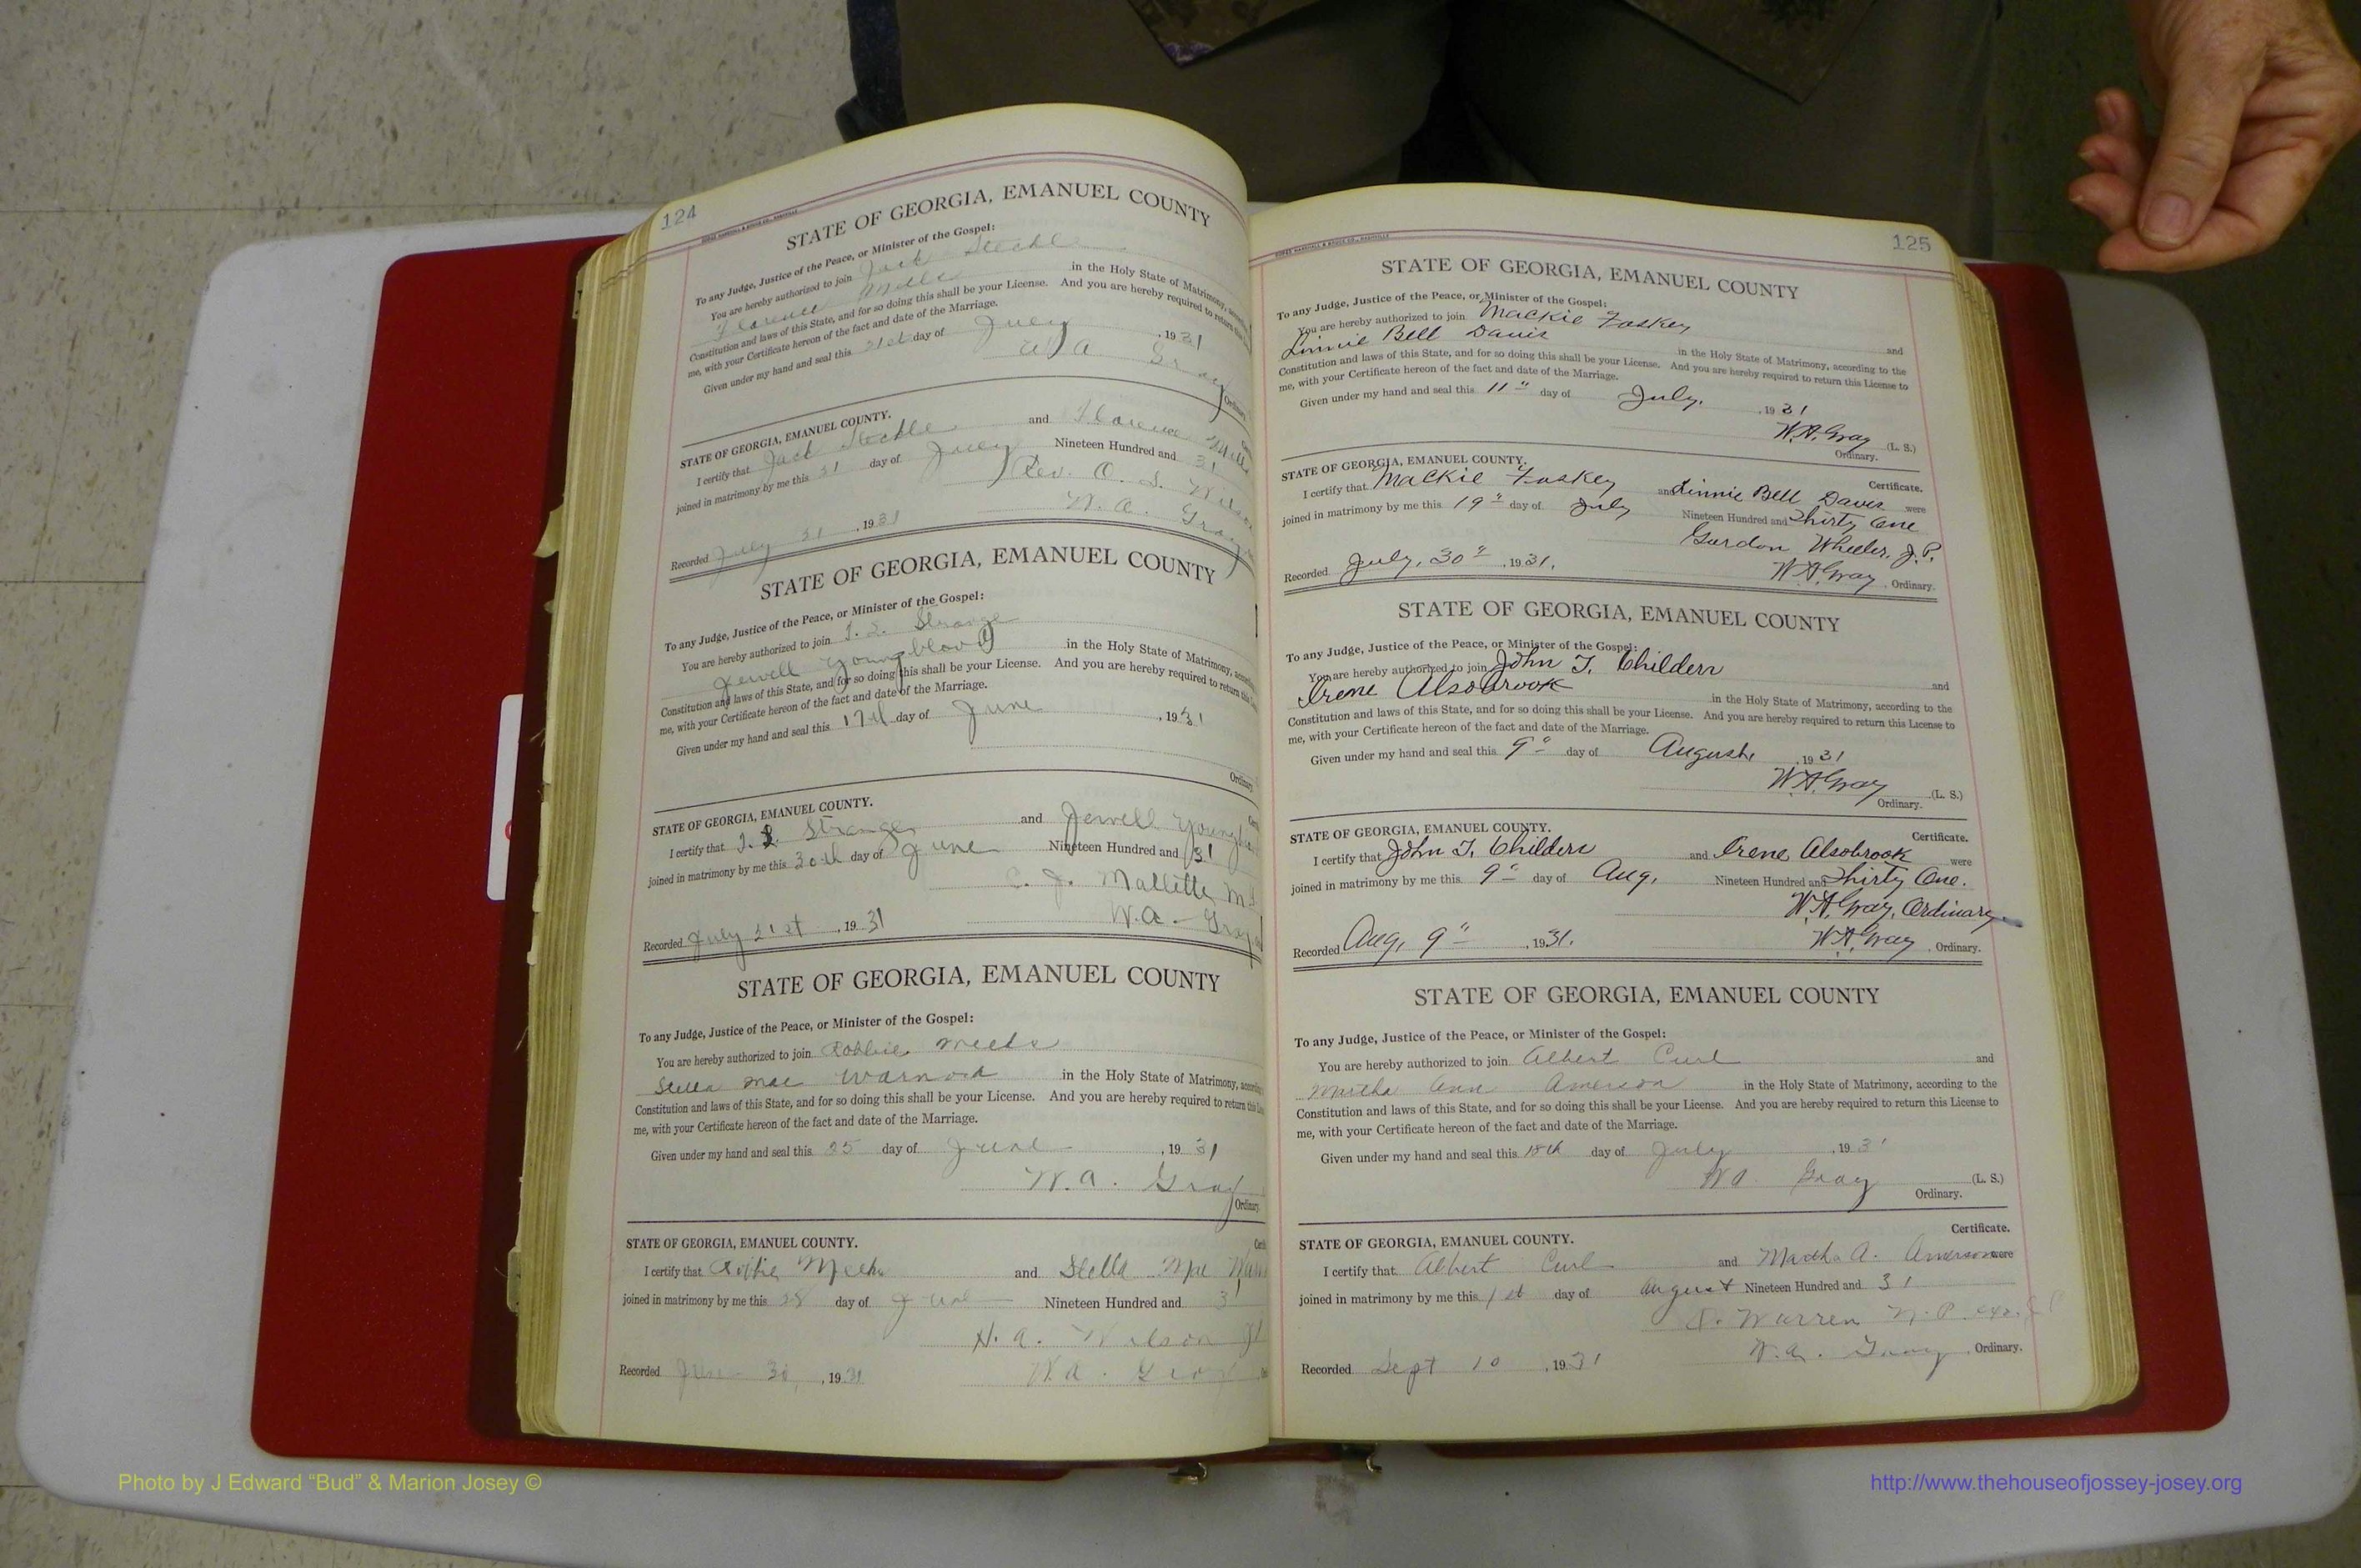 124
STATE OF GEORGIA, EMANUEL COUNTY
To any Judge, Justice of the Peace, or Minister of the Gospel:
You are hereby authorized to join Jack Steckle
Florence Mills in the Holy State of Matrimony,
Constitution and laws of this State, and for so doing this shall be your License. And you are hereby required to return
me, with your Certificate hereon of the fact and date of the Marriage.
Given under my hand and seal this 21st day of July , 1931
W A Gray
Ordinary
STATE OF GEORGIA, EMANUEL COUNTY.
I certify that Jack Steckle and Florence Mills
joined in matrimony by me this 21 day of July Nineteen Hundred and 31
Rev. O. S. Wilson
W. A. Gray
Recorded July 21 , 1931
STATE OF GEORGIA, EMANUEL COUNTY
To any Judge, Justice of the Peace, or Minister of the Gospel:
You are hereby authorized to join J. L. Strange
Jewell Youngblood in the Holy State of Matrimony,
Constitution and laws of this State, and for so doing this shall be your License. And you are hereby required to return this
me, with your Certificate hereon of the fact and date of the Marriage.
Given under my hand and seal this 17th day of June , 1931
Ordinary
STATE OF GEORGIA, EMANUEL COUNTY.
I certify that Strange and Jewell
joined in matrimony by me this 30th day of June Nineteen Hundred and 31
C. J. Mallette
W. A. Gray
Recorded July 21st , 1931
STATE OF GEORGIA, EMANUEL COUNTY
To any Judge, Justice of the Peace, or Minister of the Gospel:
You are hereby authorized to join Robbie Meeks
Stella Mae Warnock in the Holy State of Matrimony,
Constitution and laws of this State, and for so doing this shall be your License. And you are hereby required to return this
me, with your Certificate hereon of the fact and date of the Marriage.
Given under my hand and seal this 25 day of June , 1931
W. A. Gray
Ordinary.
STATE OF GEORGIA, EMANUEL COUNTY.
I certify that Robbie Meeks and Stella Mae
joined in matrimony by me this 28 day of June Nineteen Hundred and 31
H. A. Wilson
W. A. Gray
Recorded June 30, , 1931
125
STATE OF GEORGIA, EMANUEL COUNTY
To any Judge, Justice of the Peace, or Minister of the Gospel:
You are hereby authorized to join Mackie Foskey and
Linnie Bell Davis in the Holy State of Matrimony, according to the
Constitution and laws of this State, and for so doing this shall be your License. And you are hereby required to return this License to
me, with your Certificate hereon of the fact and date of the Marriage.
Given under my hand and seal this 11" day of July. , 1931
W.A. Gray (L. S.)
Ordinary.
STATE OF GEORGIA, EMANUEL COUNTY. Certificate.
I certify that Mackie Foskey and Linnie Bell Davis were
joined in matrimony by me this 19" day of July Nineteen Hundred and Thirty One
Gordon Wheeler, J.P.
Recorded July, 30" , 1931. W.A. Gray , Ordinary.
STATE OF GEORGIA, EMANUEL COUNTY
To any Judge, Justice of the Peace, or Minister of the Gospel:
You are hereby authorized to join John T. Childers and
Irene Alsobrook in the Holy State of Matrimony, according to the
Constitution and laws of this State, and for so doing this shall be your License. And you are hereby required to return this License to
me, with your Certificate hereon of the fact and date of the Marriage.
Given under my hand and seal this 9" day of August, , 1931
W.A. Gray (L. S.)
Ordinary.
STATE OF GEORGIA, EMANUEL COUNTY. Certificate.
I certify that John T. Childers and Irene Alsobrook were
joined in matrimony by me this 9" day of Aug, Nineteen Hundred and Thirty One.
W.A. Gray, Ordinary.
Recorded Aug, 9" , 1931. W.A. Gray , Ordinary.
STATE OF GEORGIA, EMANUEL COUNTY
To any Judge, Justice of the Peace, or Minister of the Gospel:
You are hereby authorized to join Albert Curl and
Martha Ann Amerson in the Holy State of Matrimony, according to the
Constitution and laws of this State, and for so doing this shall be your License. And you are hereby required to return this License to
me, with your Certificate hereon of the fact and date of the Marriage.
Given under my hand and seal this 18th day of July , 1931
W A Gray (L. S.)
Ordinary.
STATE OF GEORGIA, EMANUEL COUNTY. Certificate.
I certify that Albert Curl and Martha A. Amerson were
joined in matrimony by me this 1st day of August Nineteen Hundred and 31
Warren N. P.
Recorded Sept 10 , 1931 W. A. Gray , Ordinary.
Photo by J Edward “Bud” & Marion Josey ©
http://www.thehouseofjossey-josey.org